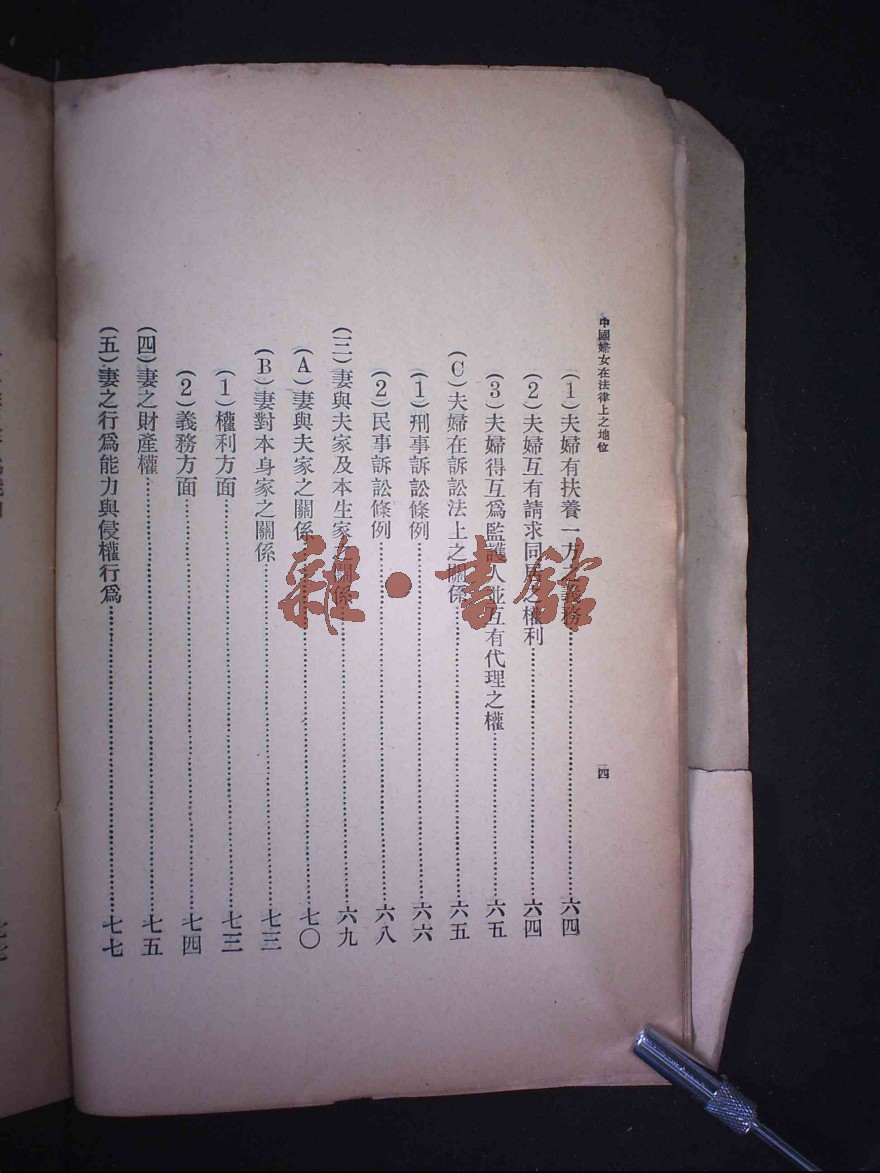 中國婦女在法律上之地位
四
(1)夫婦有扶養一方之義務……六四
(2)夫婦互有請求同居之權利……六四
(3)夫婦得互爲監護人並互有代理之權……六五
(C)夫婦在訴訟法上之關係……六五
(1)刑事訴訟條例……六六
(2)民事訴訟條例……六八
(三)妻與夫家及本生家之關係……六九
(A)妻與夫家之關係……七〇
(B)妻對本身家之關係……七三
(1)權利方面……七三
(2)義務方面……七四
(四)妻之財產權……七五
(五)妻之行爲能力與侵權行爲……七七
雜·書館